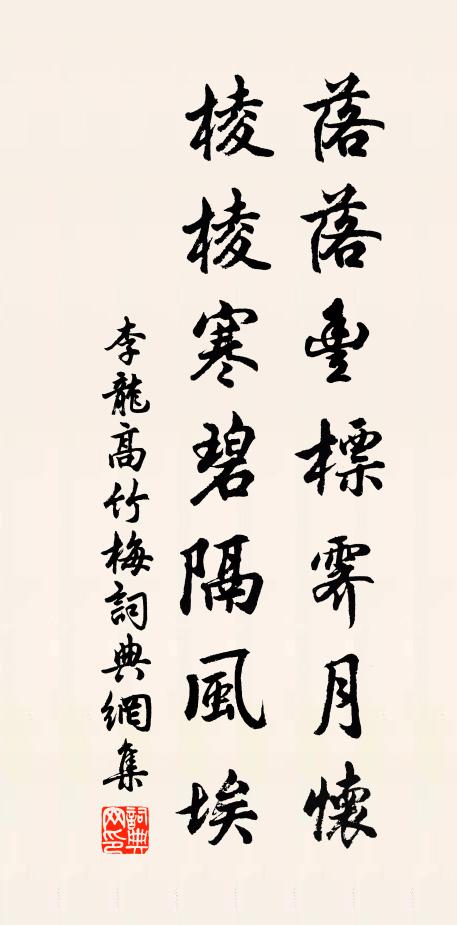 落落豐標霽月懷
棱棱寒碧隔風埃
李龍高竹梅詞典網集
詞典网印